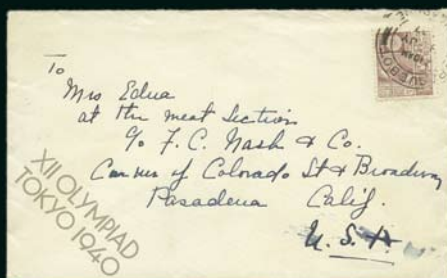 To
Mrs Edna
at the meat Section
c/o F. C. Nash & Co.
Corner of Colorado St & Broadway
Pasadena Calif.
U. S. A.
XII OLYMPIAD
TOKYO 1940